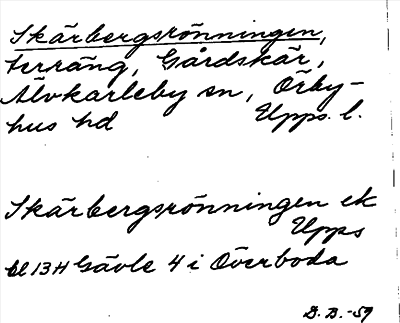 Skärbergsrönningen,
terräng, Gårdskär,
Älvkarleby sn, Örby-
hus hd Upps. l.
Skärbergsrönningen ek
Upps
bl 13H Gävle 4 i Överboda
D. B. -59